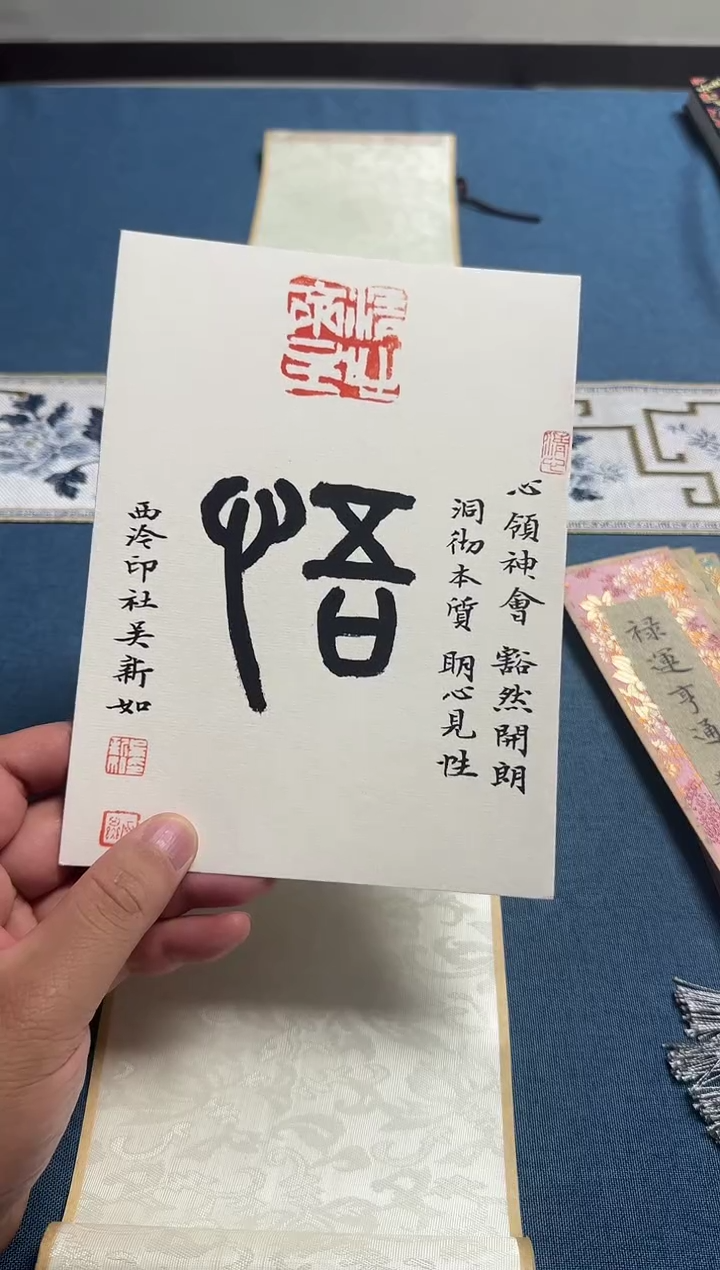 心領神會 豁然開朗
洞彻本質 眀心見性
悟
西泠印社吴新如
禄運亨通